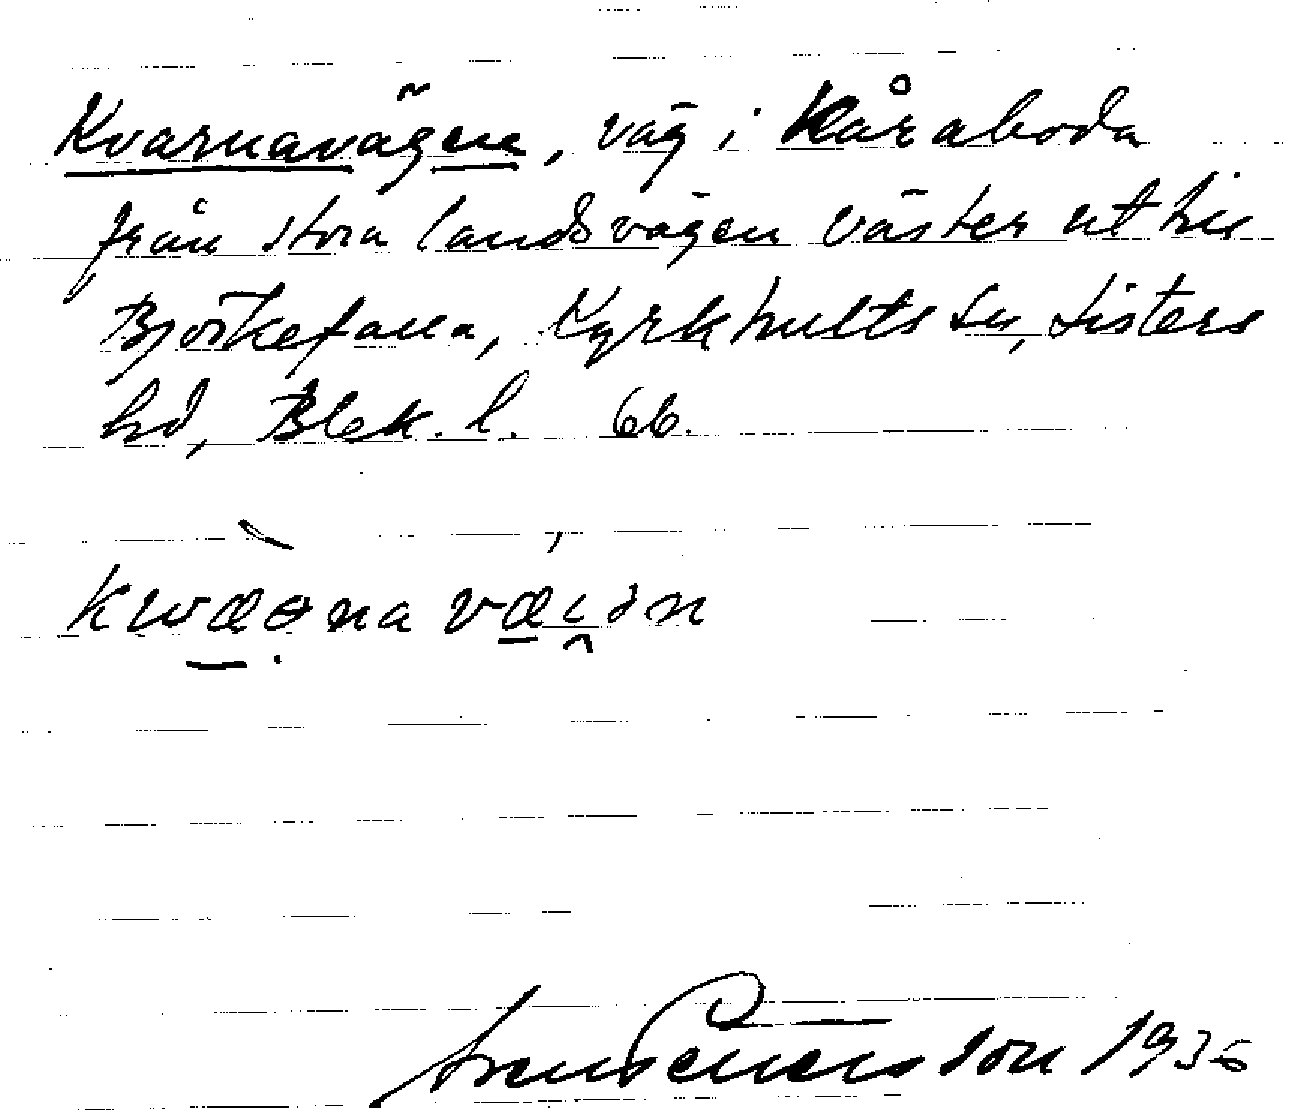 Kvarnavägen, väg i Kåraboda
från stora landsvägen väster ut till
Björkefalla, Kyrkhults sn, Listers
hd, Blek. l. 66.
kwæɘna væiən
Sven Pettersson 1936